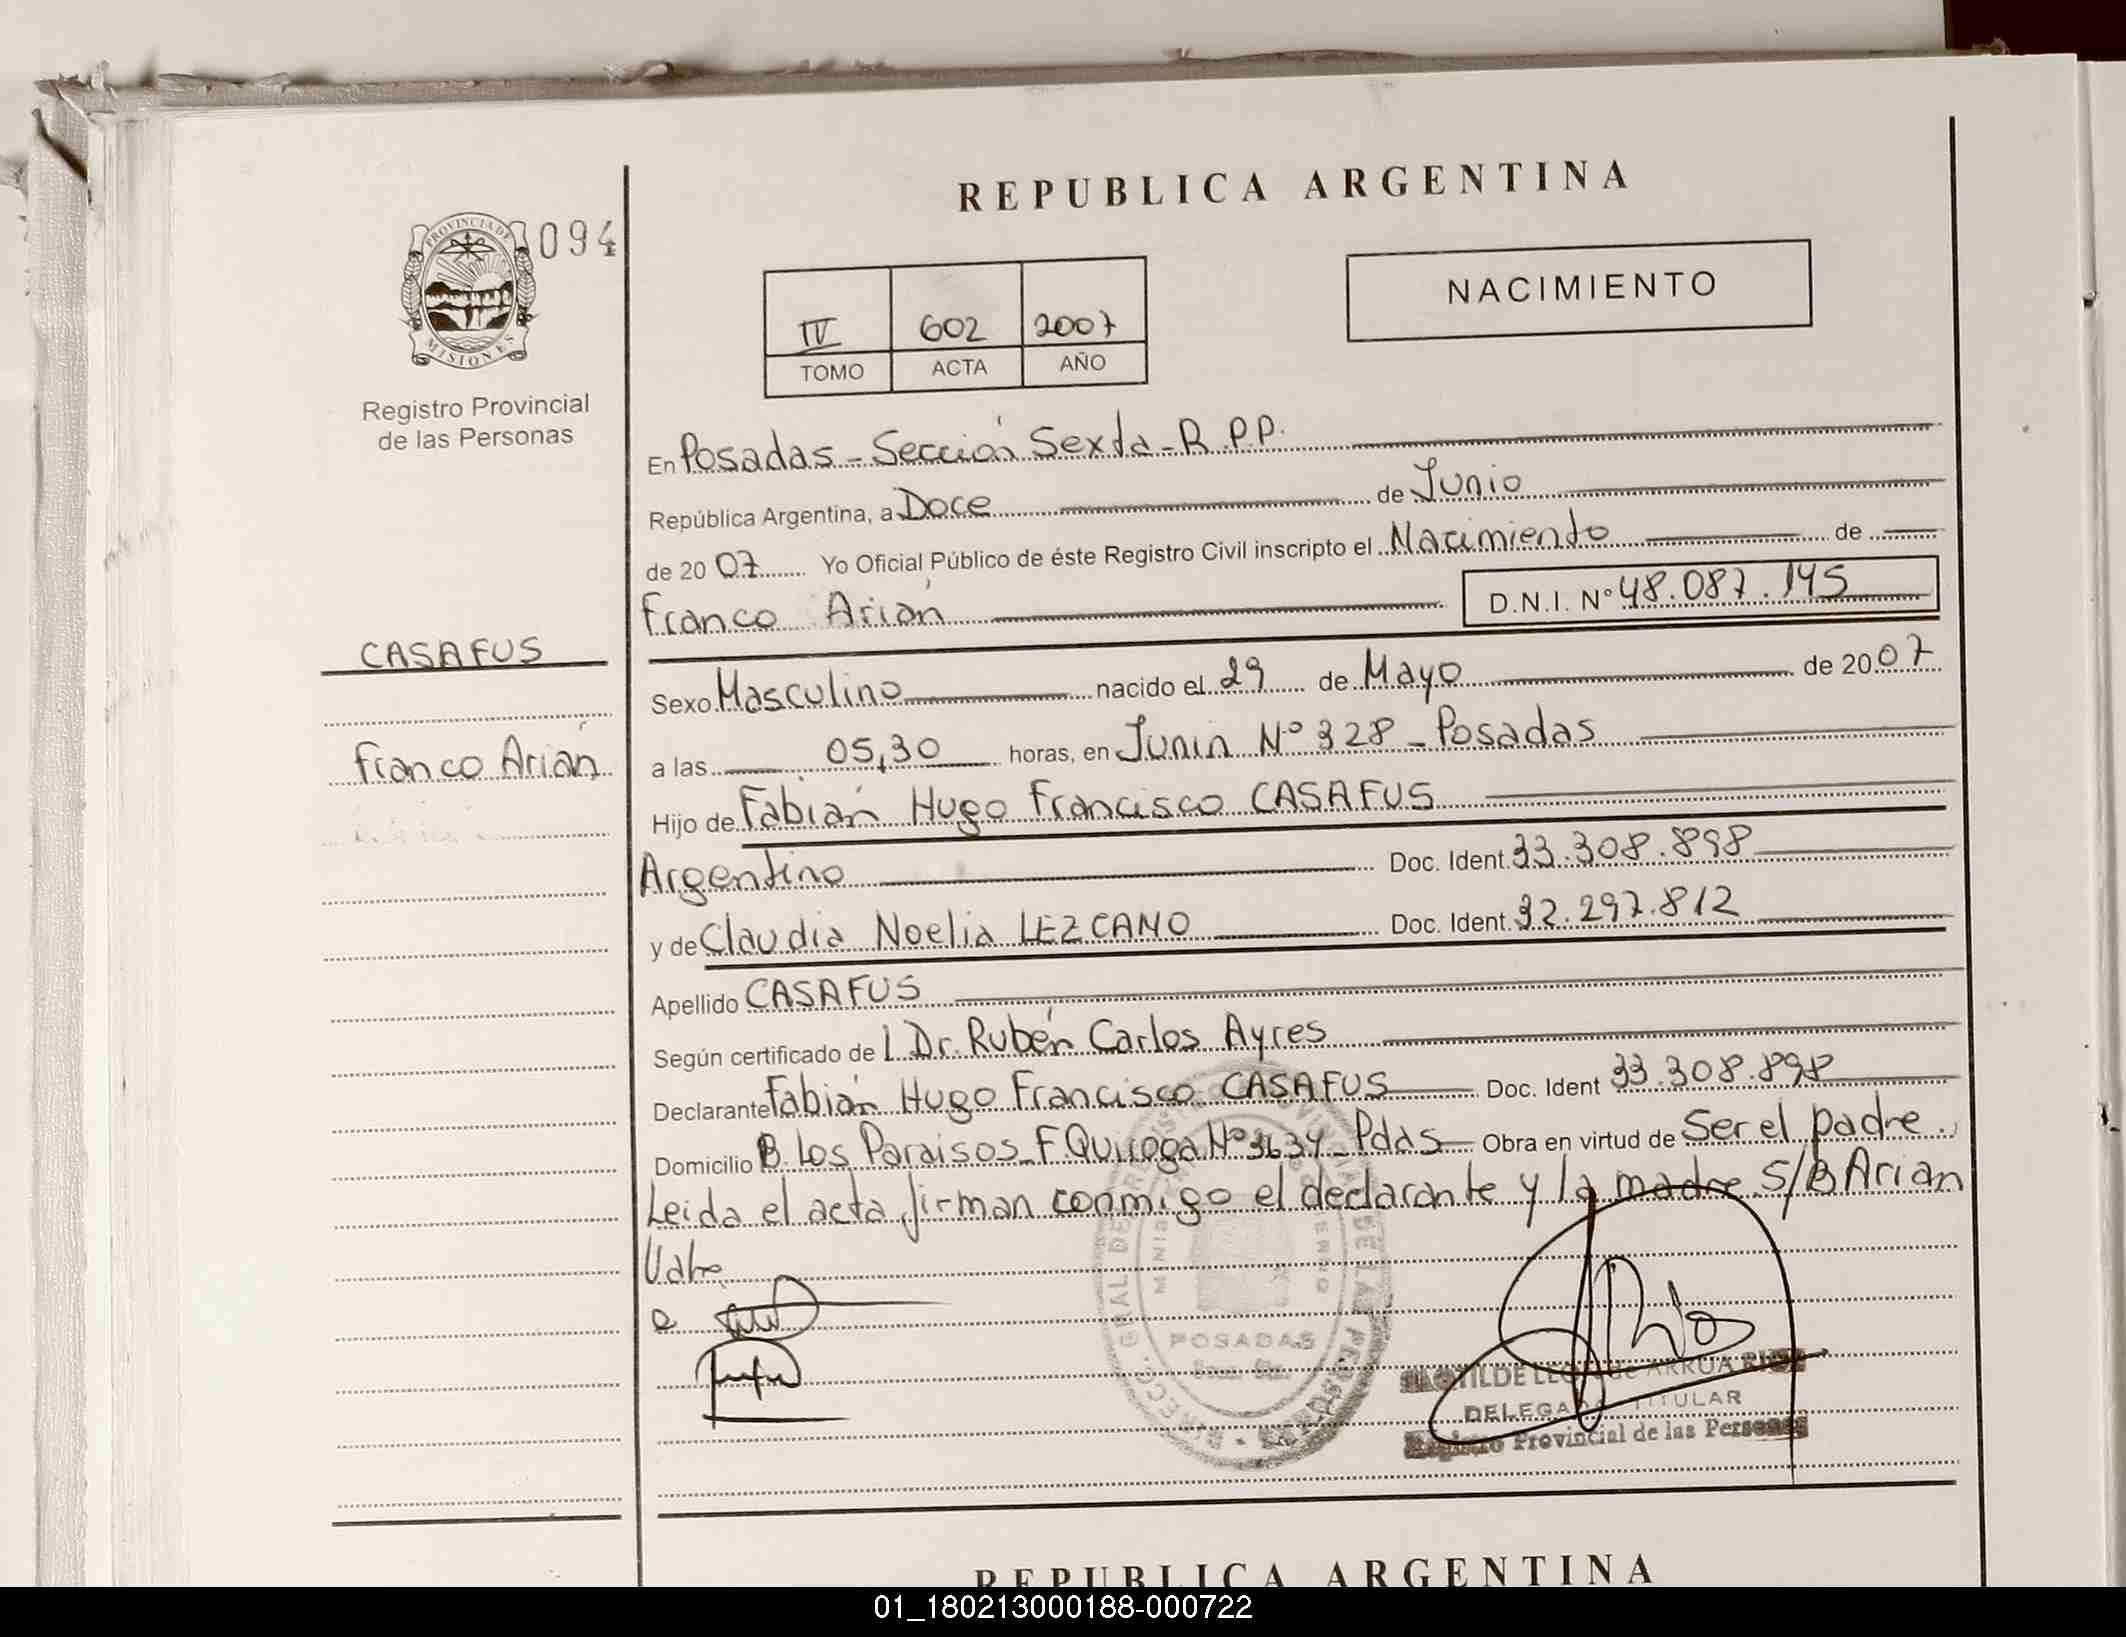 REPUBLICA ARGENTINA
094
PROVINCIA DE
MISIONES
Registro Provincial
de las Personas
NACIMIENTO
IV 602 2007
TOMO ACTA AÑO
En Posadas - Sección Sexta - R.P.P.
República Argentina, a Doce de Junio
de 20 07 Yo Oficial Público de éste Registro Civil inscripto el Nacimiento de
Franco Arián D.N.I. Nº 48.087.145
CASAFUS
Franco Arián
Sexo Masculino nacido el 29 de Mayo de 20 07
a las 05,30 horas, en Junin Nº 328 - Posadas
Hijo de Fabián Hugo Francisco CASAFUS
Argentino Doc. Ident. 33.308.898
y de Claudia Noelia LEZCANO Doc. Ident. 32.297.812
Apellido CASAFUS
Según certificado de l Dr. Rubén Carlos Ayres
Declarante Fabián Hugo Francisco CASAFUS Doc. Ident 33.308.898
Domicilio B. Los Paraisos - F Quiroga Nº 3634 - Pdas Obra en virtud de Ser el padre.
Leida el acta, firman conmigo el declarante y la madre. S/B Arian
Vale
POSADAS
DELEGADA TITULAR
Registro Provincial de las Personas
REPUBLICA ARGENTINA
01_180213000188-000722